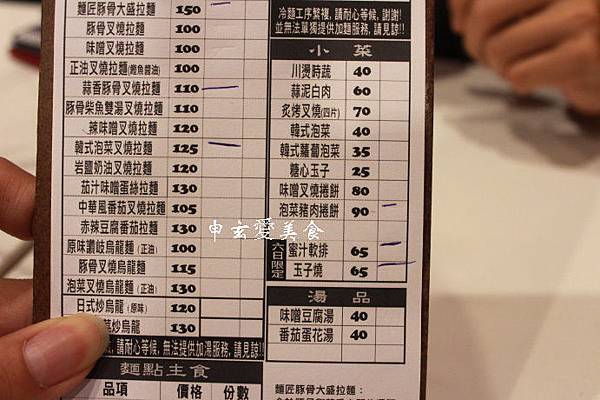 麵匠豚骨大盛拉麵 150
豚骨叉燒拉麵 100
味噌叉燒拉麵 100
正油叉燒拉麵(鰹魚醬油) 100
蒜香豚骨叉燒拉麵 110
豚骨柴魚雙湯叉燒拉麵 110
辣味噌叉燒拉麵 120
韓式泡菜叉燒拉麵 125
岩鹽奶油叉燒拉麵 120
茄汁味噌蛋絲拉麵 130
中華風番茄叉燒拉麵 105
赤辣豆腐番茄拉麵 130
原味讚岐烏龍麵(正油) 100
豚骨叉燒烏龍麵 115
泡菜叉燒烏龍麵(正油) 130
日式炒烏龍(原味) 120
炒烏龍 130
請耐心等候,無法提供加湯服務,請見諒!!
麵點主食
品項 價格 份數
冷麵工序繁複,請耐心等候,謝謝!
並無法單獨提供加麵服務,請見諒!!
小菜
川燙時蔬 40
蒜泥白肉 60
炙烤叉燒(四片) 70
韓式泡菜 40
韓式蘿蔔泡菜 35
糖心玉子 25
味噌叉燒捲餅 80
泡菜豬肉捲餅 90
六日限定
蜜汁軟排 65
玉子燒 65
湯品
味噌豆腐湯 40
番茄蛋花湯 40
麵匠豚骨大盛拉麵:
申玄愛美食